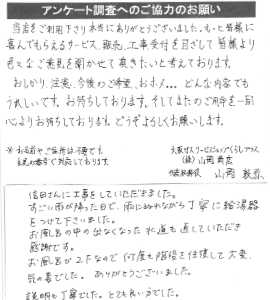 アンケート調査へのご協力のお願い
当店をご利用下さり本当にありがとうございました。もっと皆様に
喜んでもらえるサービス、販売、工事受付を目ざして皆様より
色々なご意見を聞かせて頂きたいと考えております。
おしかり、注意、今後のご希望、おホメ...どんな内容でも
うれしいです。お待ちしております。そしてまたのご用命を一同
心よりお待ちしております。どうぞよろしくお願いします。
※お名前やご住所は不要です。
大阪ガスサービスショップ
(株)山岡商店
山岡
信田さんに工事をしていただきました。
すごい雨が降った日で、雨にぬれながら丁寧に給湯器
をつけて下さいました。
お風呂の中の出なくなった水道も直していただき
感謝です。
お風呂が2Fなので何度も階段を往復して大変、
気の毒でした。ありがとうございました。
説明も丁寧でした。とても良い方でした。